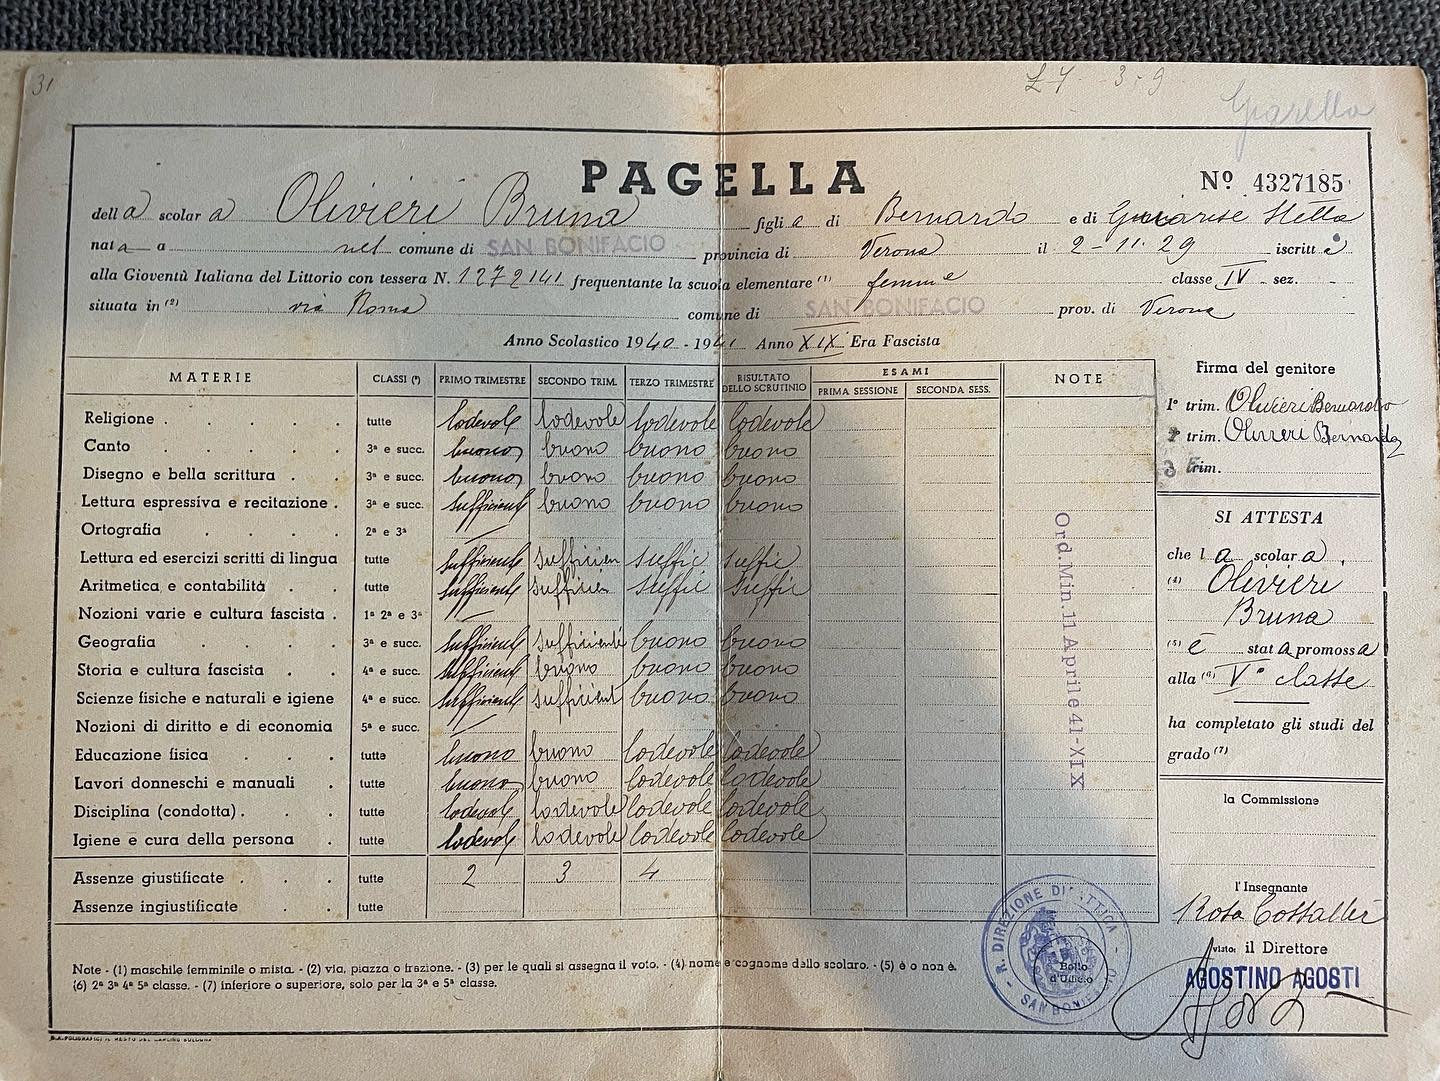 31
£7 3.9
PAGELLA
Nº 4327185
della scolara Olivieri Bruna figlia di Bernardo e di Stella
nata a nel comune di SAN BONIFACIO provincia di Verona il 2-11-29 iscritta
alla Gioventù Italiana del Littorio con tessera N. 1272141 frequentante la scuola elementare (1) femme classe IV sez.
situata in (2) via Roma comune di SAN BONIFACIO prov. di Verona
Anno Scolastico 1940 - 1941 Anno XIX Era Fascista
MATERIE CLASSI (3) PRIMO TRIMESTRE SECONDO TRIM. TERZO TRIMESTRE RISULTATO DELLO SCRUTINIO ESAMI PRIMA SESSIONE SECONDA SESS. NOTE
Religione tutte lodevole lodevole lodevole lodevole
Canto 3ª e succ. buono buono buono buono
Disegno e bella scrittura 3ª e succ. buono buono buono buono
Lettura espressiva e recitazione 3ª e succ. sufficient buono buono buono
Ortografia 2ª e 3ª
Lettura ed esercizi scritti di lingua tutte sufficient sufficien suffic suffic
Aritmetica e contabilità tutte sufficient sufficien suffic suffic
Nozioni varie e cultura fascista 1ª 2ª e 3ª
Geografia 3ª e succ. sufficient sufficiente buono buono
Storia e cultura fascista 4ª e succ. sufficient buono buono buono
Scienze fisiche e naturali e igiene 4ª e succ. sufficient sufficient buono buono
Nozioni di diritto e di economia 5ª e succ.
Educazione fisica tutte buono buono lodevole lodevole
Lavori donneschi e manuali tutte buono buono lodevole lodevole
Disciplina (condotta) tutte lodevol lodevole lodevole lodevole
Igiene e cura della persona tutte lodevol lodevole lodevole lodevole
Assenze giustificate tutte 2 3 4
Assenze ingiustificate tutte
Ord.Min.11 Aprile 41-XIX
Firma del genitore
1º trim. Olivieri Bernardo
2º trim. Olivieri Bernardo
3 trim.
SI ATTESTA
che la scolara
(4) Olivieri
Bruna
(5) è stata promossa
alla (6) Vª classe
ha completato gli studi del
grado (7)
la Commissione
l'Insegnante
Rosa
Visto: il Direttore
AGOSTINO AGOSTI
R. DIREZIONE DIDATTICA - SAN BONIFACIO
Bollo d'Ufficio
Note - (1) maschile femminile o mista. - (2) via, piazza o frazione. - (3) per le quali si assegna il voto. - (4) nome e cognome dello scolaro. - (5) è o non è.
(6) 2ª 3ª 4ª 5ª classe. - (7) inferiore o superiore, solo per la 3ª e 5ª classe.